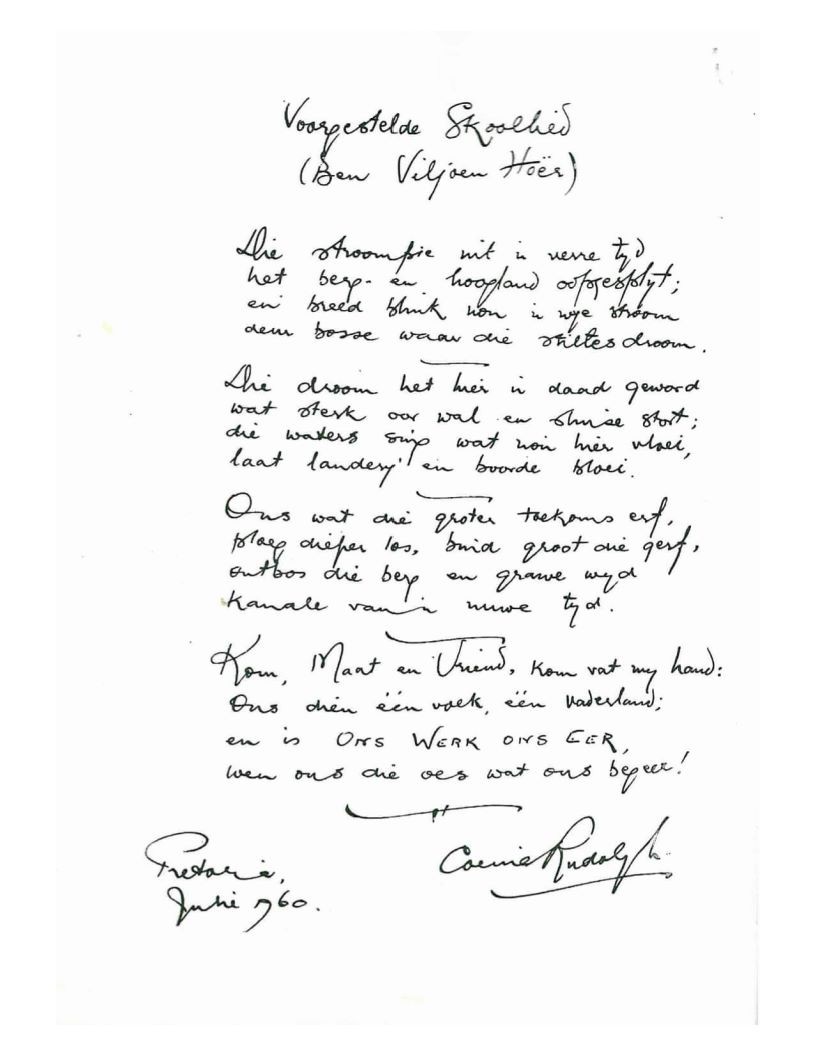 Voorgestelde Skoollied
(Ben Viljoen Hoër)
Die stroompie uit 'n verre tyd
het berg- en hoogland oopgesplyt;
en breed blink nou 'n wye stroom
deur bosse waar die stiltes droom.
Die droom het hier 'n daad geword
wat sterk oor wal en sluise stort;
die waters sing wat nou hier vloei,
laat landery en boorde bloei.
Ons wat die groter toekoms erf,
ploeg dieper los, bind groot die gerf,
ontbos die berg en grawe wyd
kanale van 'n nuwe tyd.
Kom, Maat en Vriend, kom vat my hand:
Ons dien één volk, één vaderland;
en is ONS WERK ONS EER,
wen ons die oes wat ons begeer!
Pretoria,
Julie 1960.
Coenie Rudolph